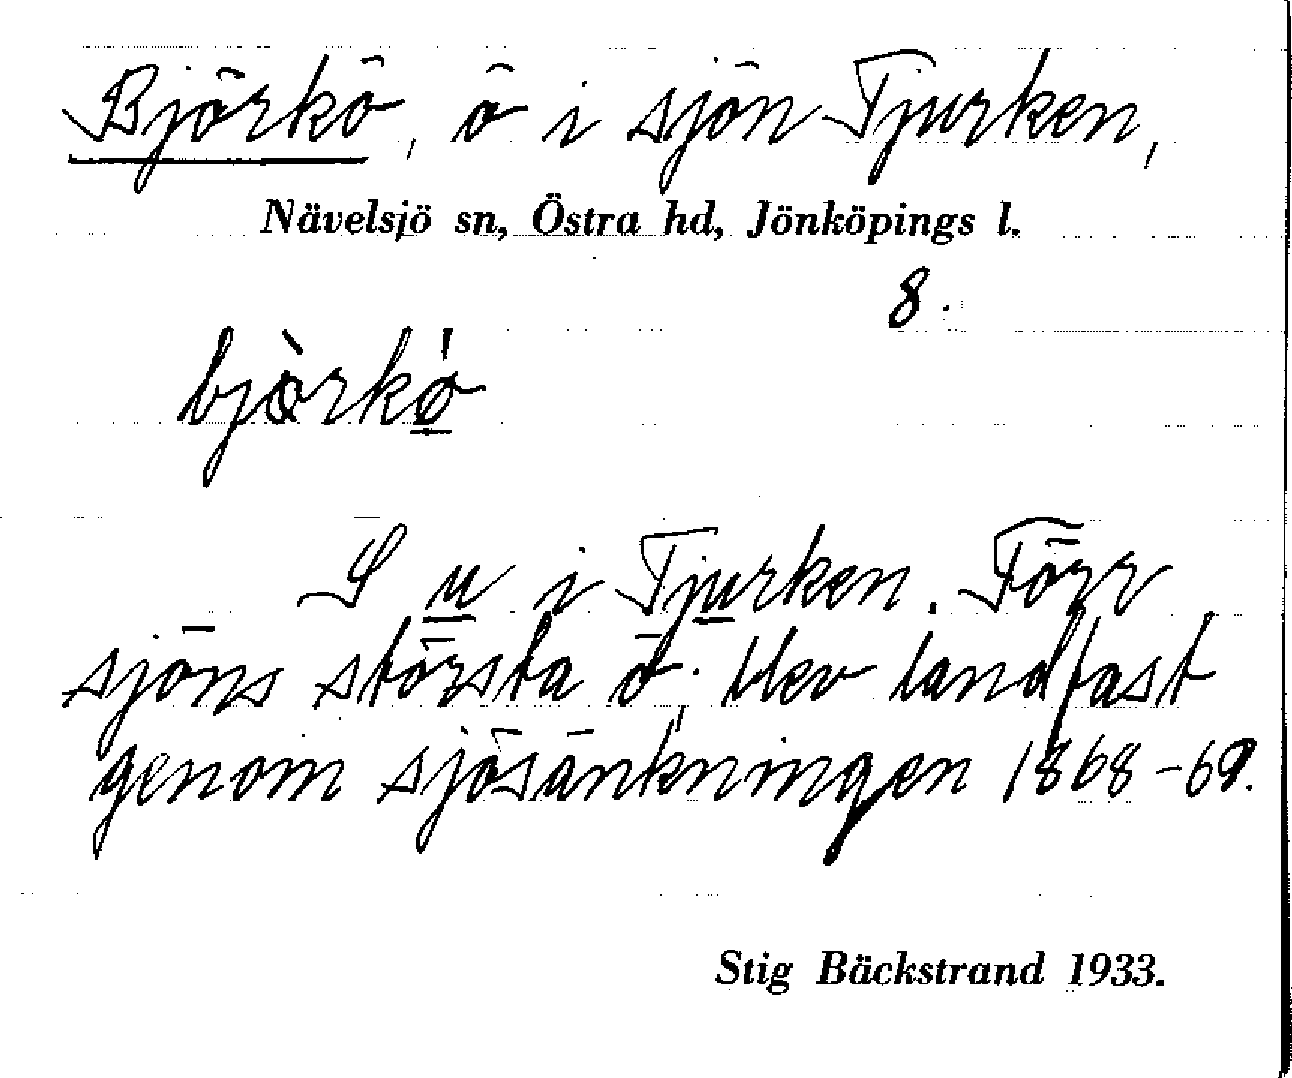 Björkö, ö i sjön Tjurken,
Nävelsjö sn, Östra hd, Jönköpings l.
8.
bjö̀rkö́
S u i Tjurken. Förr
sjöns största ö. Blev landfast
genom sjösänkningen 1868-69.
Stig Bäckstrand 1933.